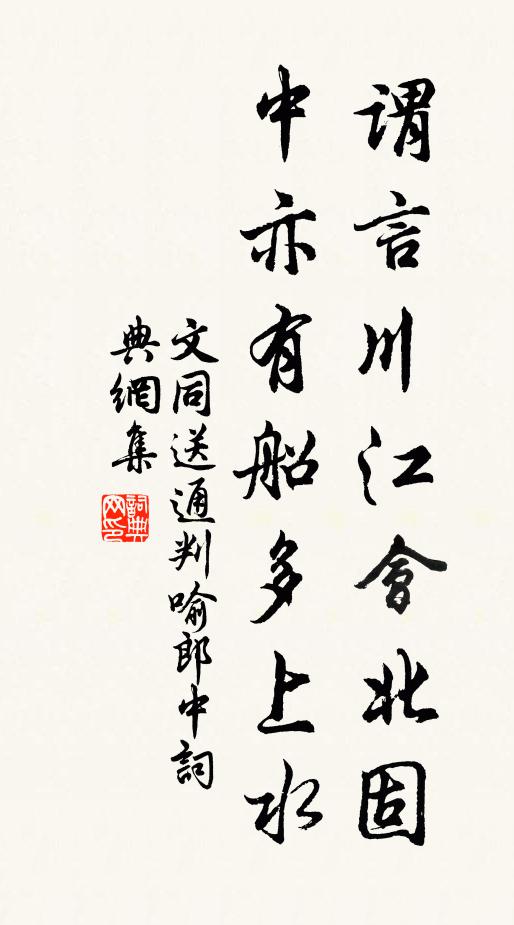 謂言川江會北固
中亦有船多上水
文同送通判喻郎中詞
典網集
詞典網印